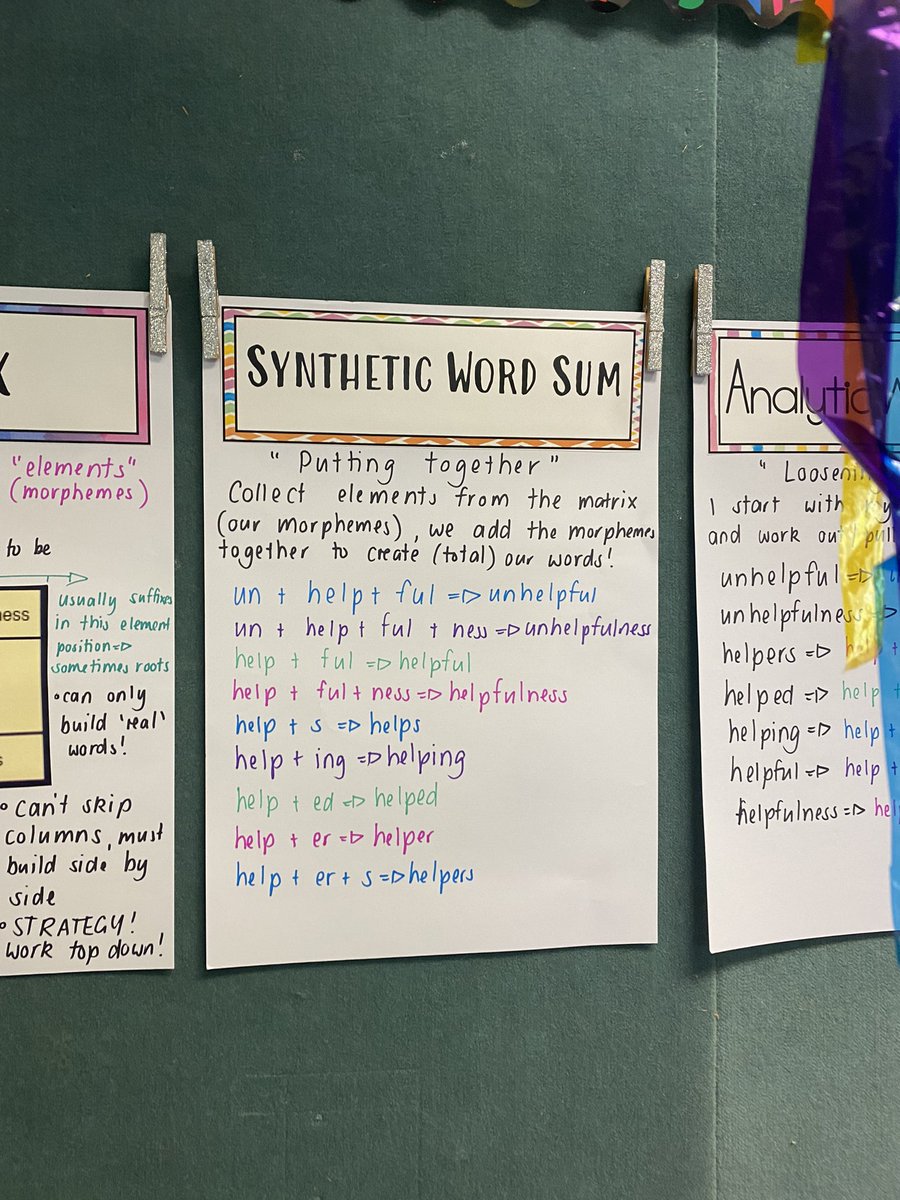 "elements"
(morphemes)
to be
ness
usually suffixes
in this element
position=▷
sometimes roots
•can only
build 'real'
words!
s
• can't skip
columns, must
build side by
side
• STRATEGY!
work top down!
SYNTHETIC WORD SUM
"Putting together"
Collect elements from the matrix
(our morphemes), we add the morphemes
together to create (total) our words!
un + help + ful =▷ unhelpful
un + help + ful + ness =▷ unhelpfulness
help + ful =▷ helpful
help + ful + ness =▷ helpfulness
help + s =▷ helps
help + ing =▷ helping
help + ed =▷ helped
help + er =▷ helper
help + er + s =▷ helpers
Analytic
"
I start with
and work out
unhelpful =▷
unhelpfulness
helpers =▷
helped =▷ help +
helping =▷ help +
helpful =▷ help +
helpfulness =▷